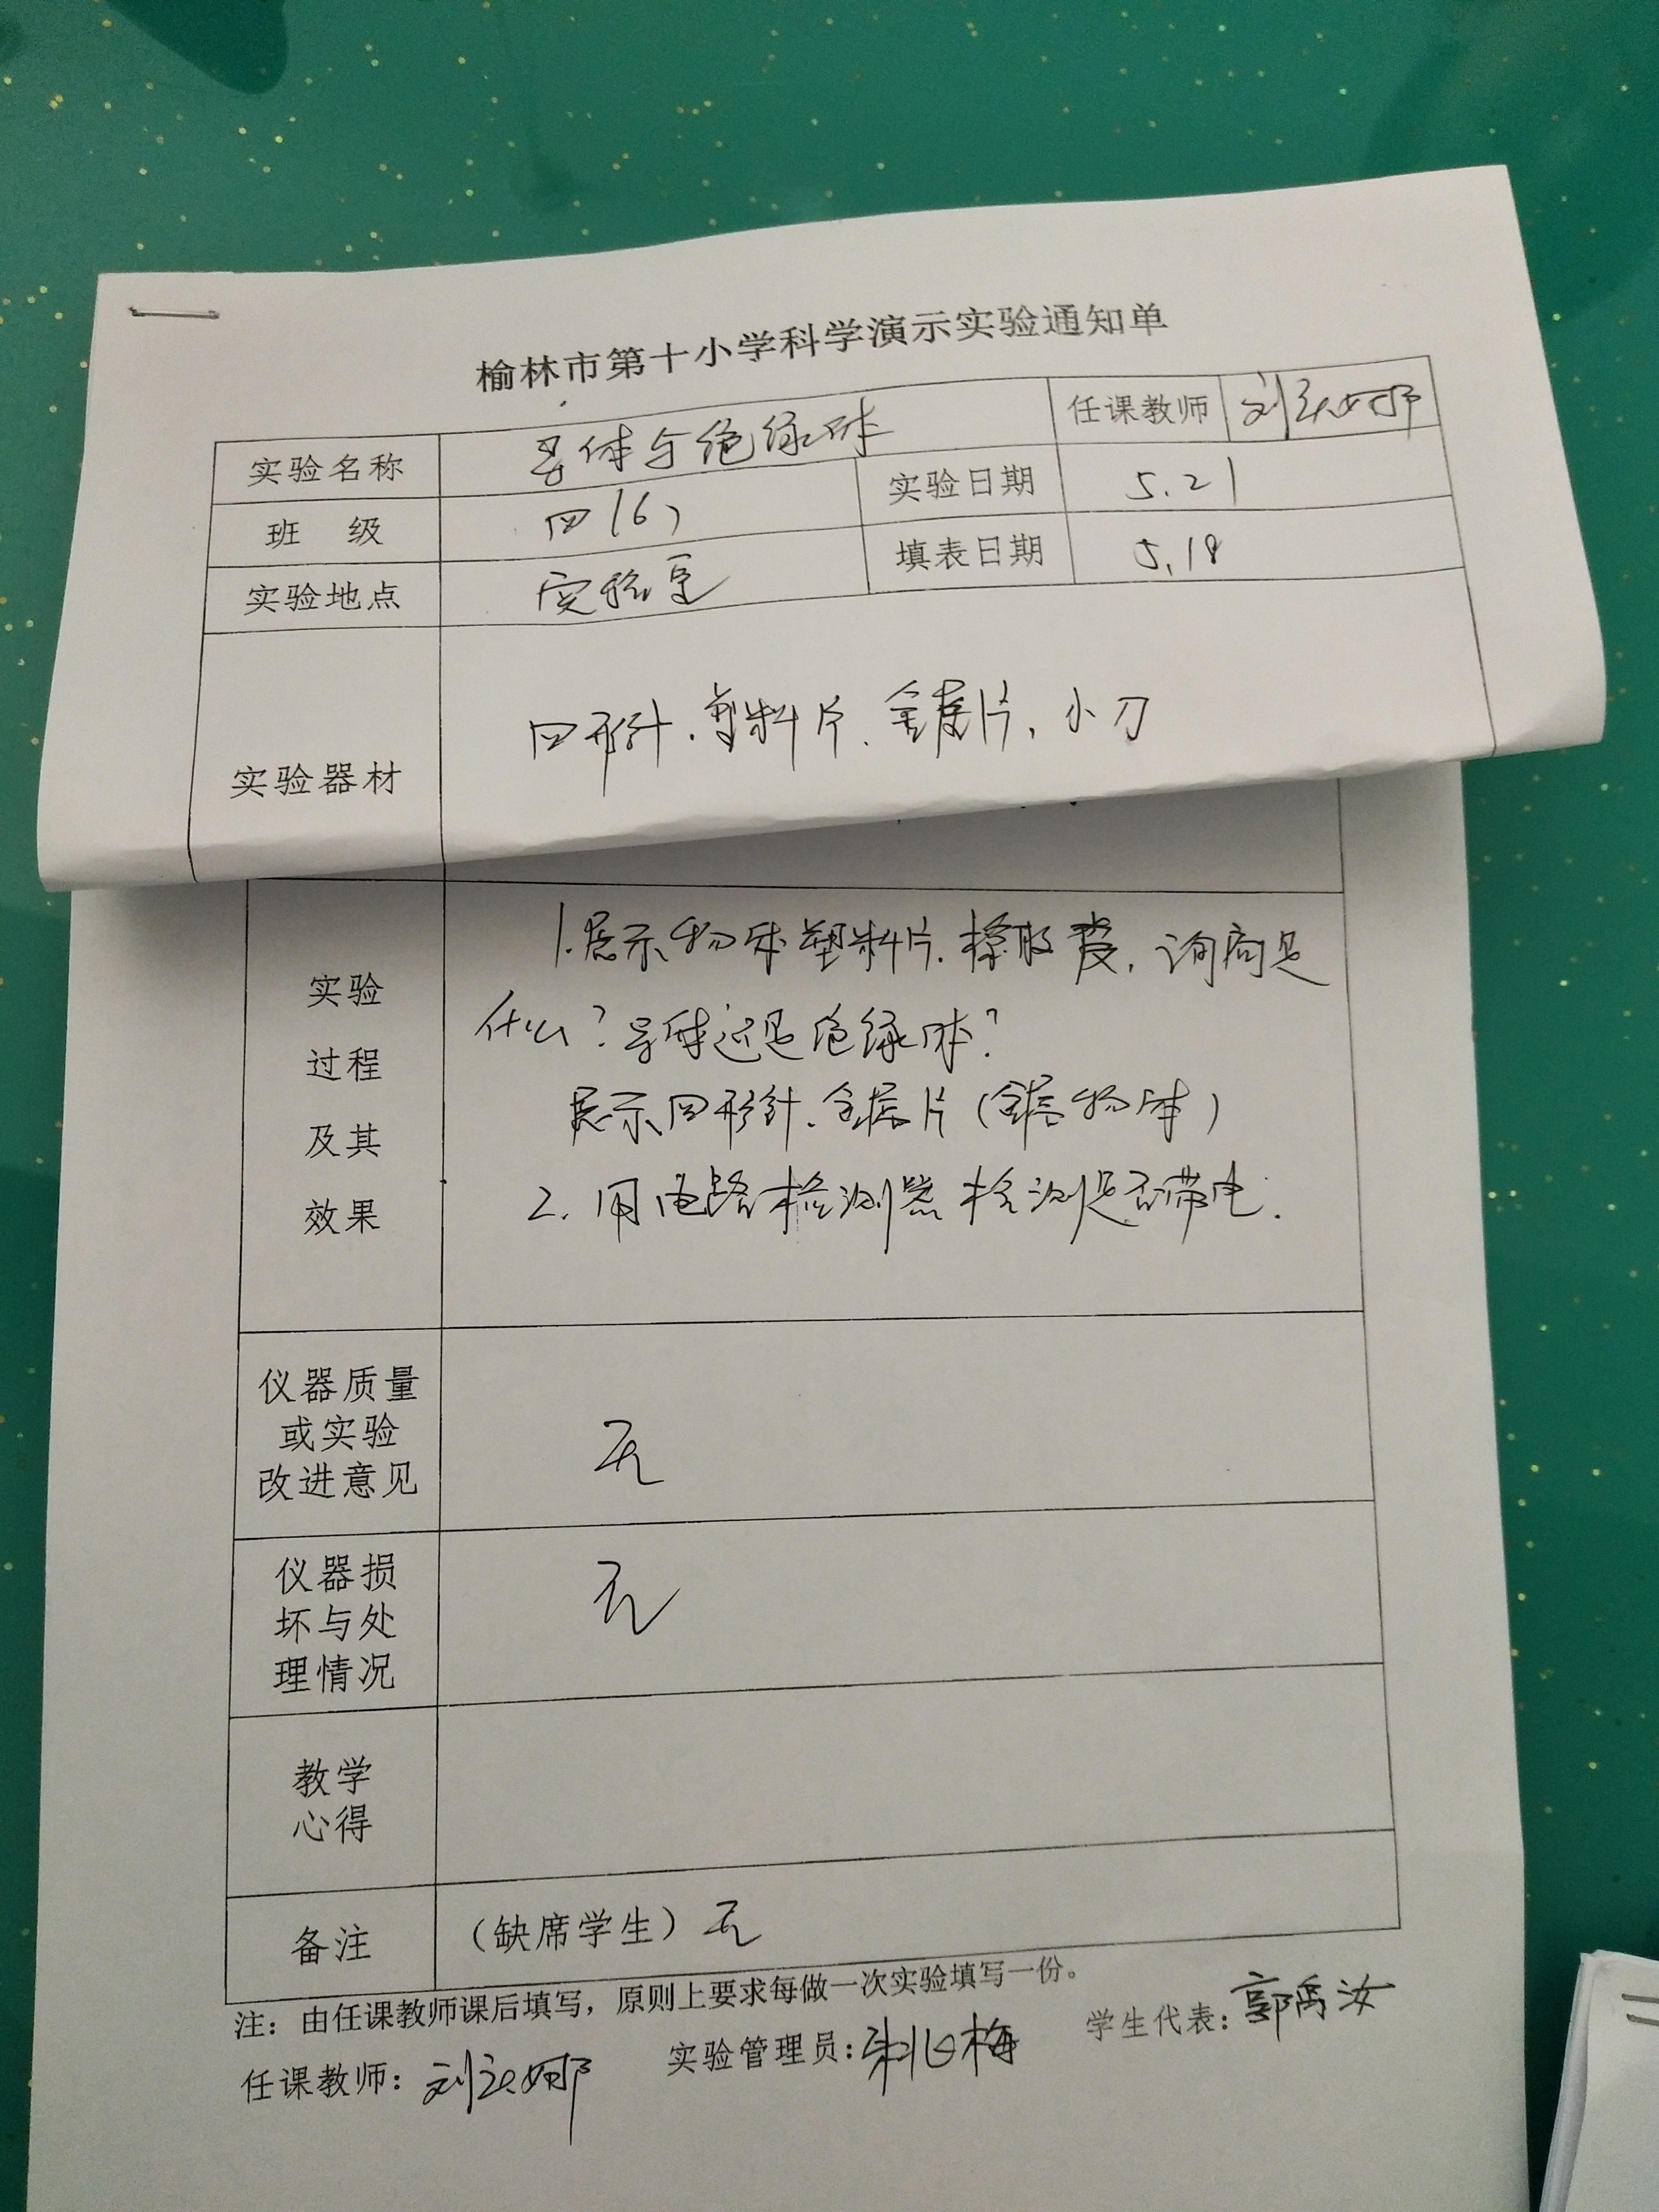 榆林市第十小学科学演示实验通知单
实验名称 导体与绝缘体 任课教师 刘
班 级 四(6) 实验日期 5.21
实验地点 实验室 填表日期 5.18
实验器材 回形针、塑料片、金属片、小刀
实验
过程
及其
效果
1.展示物体塑料片、橡胶 ,询问是
什么?导体还是绝缘体?
展示回形针、金属片(金属物体)
2.用电路检测器检测是否带电.
仪器质量
或实验
改进意见
无
仪器损
坏与处
理情况
无
教学
心得
备注 (缺席学生)无
注:由任课教师课后填写,原则上要求每做一次实验填写一份。
任课教师:刘 娜 实验管理员: 梅 学生代表:郭禹汝